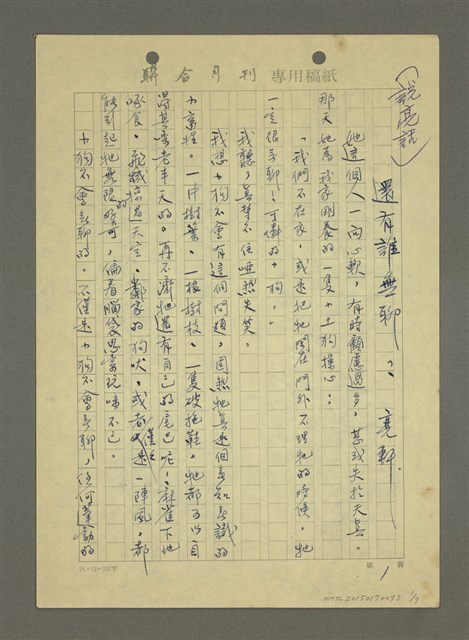 聯合月刊 專用稿紙
（說亮話）
還有誰無聊？ 亮軒
她這個人一向心軟，有時顧慮過多，甚或失於天真。
那天她為我家剛養的一隻小土狗操心：
「我們不在家，或是把牠關在門外不理牠的時候，牠
一定很無聊！可憐的小狗。」
我聽了真禁不住啞然失笑。
我想小狗不會有這個問題，固然牠真是個無知無識的
小畜牲。一片樹葉、一根樹枝、一隻破拖鞋，牠都可以自
得其樂老半天的。再不濟牠還有自己的尾巴呢。麻雀下地
啄食、飛機掠過天空、鄰家的狗吠，或者僅僅是一陣風，都
能引起牠無限的好奇，偏着腦袋思索玩味不已。
小狗不會無聊的。不僅是小狗不會無聊，任何蠢動的
第 1 頁
NMTL20150170092 1/7